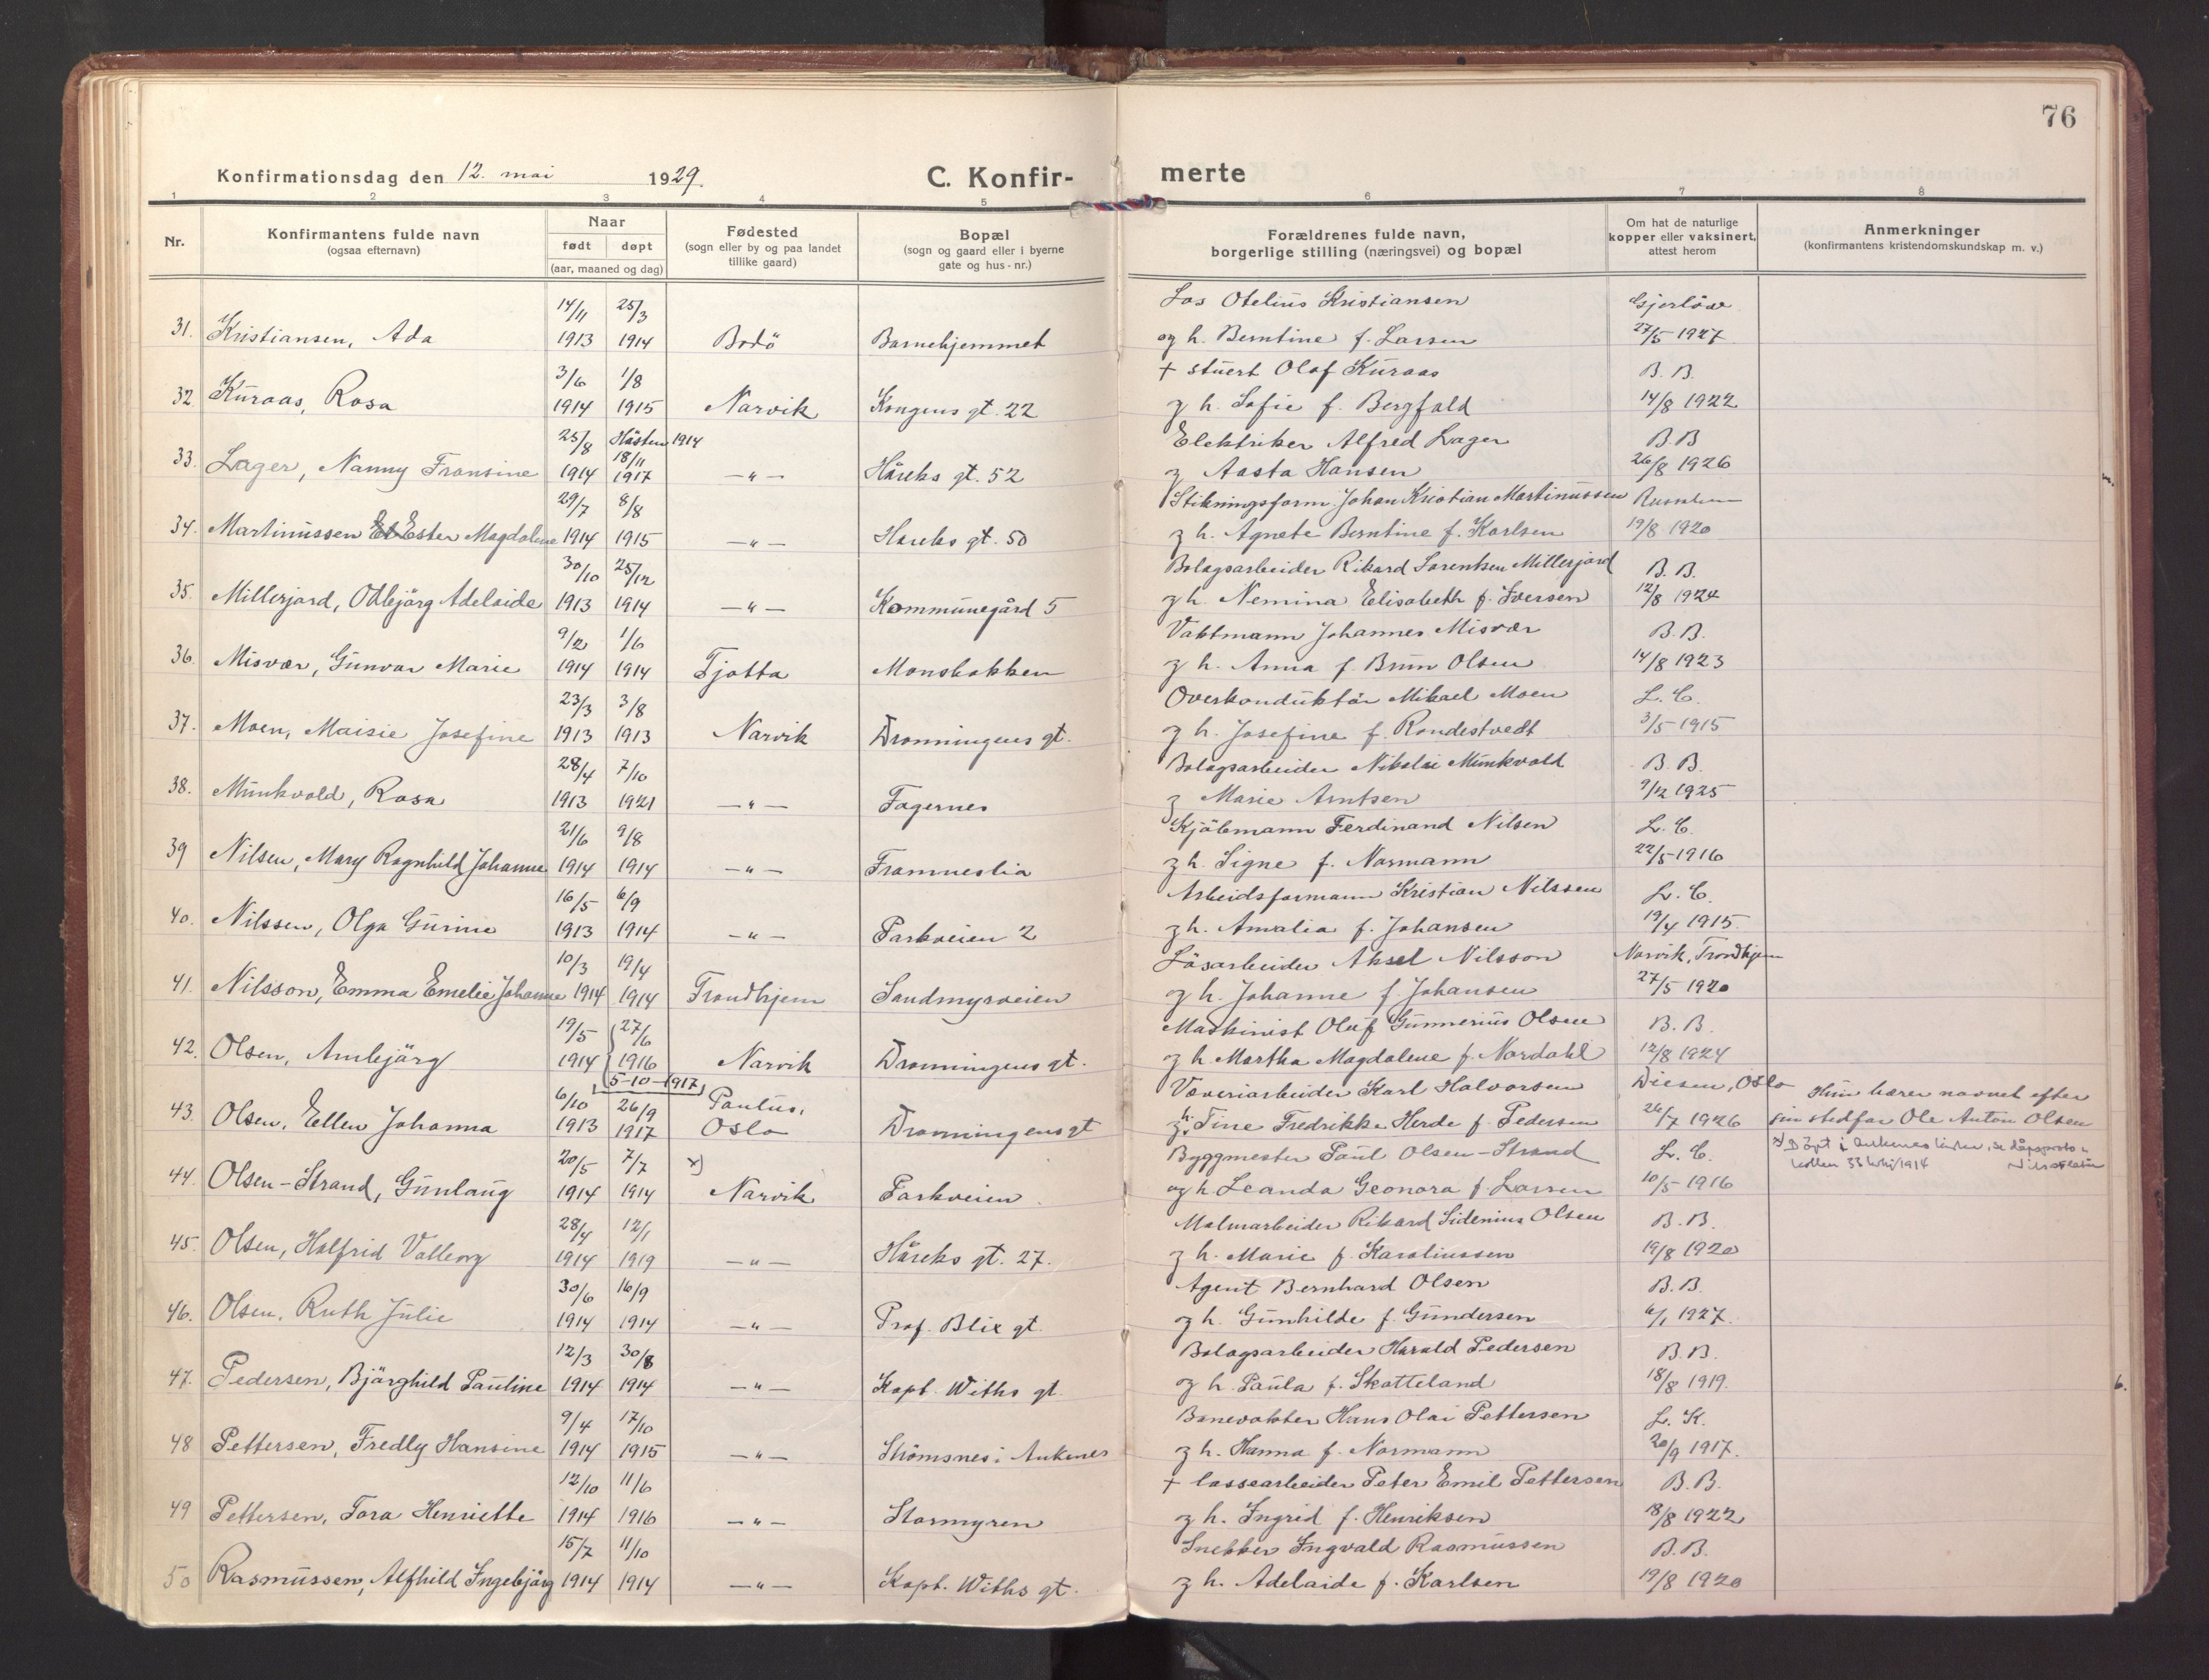 76
Konfirmationsdag den 12. mai 1929.
C. Konfir-
merte
1 2 3 4 5 6 7 8
Nr.
Konfirmantens fulde navn
(ogsaa efternavn)
Naar
født døpt
(aar, maaned og dag)
Fødested
(sogn eller by og paa landet
tillike gaard)
Bopæl
(sogn og gaard eller i byerne
gate og hus-nr.)
Forældrenes fulde navn,
borgerlige stilling (næringsvei) og bopæl
Om hat de naturlige
kopper eller vaksinert,
attest herom
Anmerkninger
(konfirmantens kristendomskundskap m. v.)
14/11 25/3 Los Otelius Kristiansen Gjerløw
31. Kristiansen, Ada 1913 1914 Bodö Barnehjemmet og h. Berntine f. Larsen 27/5 1927
3/6 1/8 + stuert Olaf Kuraas B. B.
32. Kuraas, Rosa 1914 1915 Narvik Kongens gt. 22 g h. Sofie f. Bergfald 14/8 1922
25/8 Hösten 1914 Elektriker Alfred Lager B.B
33. Lager, Nanny Fransine 1914 18/11 1917 —"— Håreks gt. 52 g Aasta Hansen 26/8 1926
29/7 8/8 Stikningsform. Johan Kristian Martinussen
34. Martinussen Ester Magdalene 1914 1915 —"— Hareks gt. 50 g h. Agnete Berntine f. Karlsen 19/8 1920
30/10 25/12 Bolagsarbeider Rikard Lorentsen Millerjord B. B.
35. Millerjord, Otbjörg Adelaide 1913 1914 —"— Kommunegård 5 g h. Nemina Elisabeth f. Iversen 12/8 1924
9/2 1/6 Vaktmann Johannes Misvær B. B.
36. Misvær, Gunvor Marie 1914 1914 Tjøtta Monsbakken g h. Anna f. Brun Olsen 14/8 1923
23/3 3/8 Overkonduktör Mikael Moen L. C.
37. Moen, Maisie Josefine 1913 1913 Narvik Dronningens gt. g h. Josefine f. Rondestvedt 3/5 1915
28/4 7/10 Bolagsarbeider Nikolai Munkvold B. B.
38. Munkvold, Rosa 1913 1921 —"— Fagernes g Marie Arntsen 9/12 1925
21/6 9/8 Kjöbmann Ferdinand Nilsen L. C.
39 Nilsen, Mary Ragnhild Johanne 1914 1914 —"— Framneslia g h. Signe f. Normann 22/5 1916
16/5 6/9 Arbeidsformann Kristian Nilssen L. C.
40. Nilssen, Olga Gurine 1913 1914 —"— Parkveien 2 g h. Amalia f. Johansen 19/4 1915.
10/3 19/4 Lösarbeider Aksel Nilsson Narvik, Trondhjem
41. Nilsson, Emma Emelie Johanne 1914 1914 Trondhjem Sandmyrveien og h. Johanne f. Johansen 27/5 1920
19/5 27/6 Maskinist Oluf Gunnerius Olsen B. B.
42. Olsen, Annbjörg 1914 1916 Narvik Dronningens gt. og h. Martha Magdalene f. Nordahl 12/8 1924
5-10-1917
6/10 26/9 Paulus, Væveriarbeider Karl Halvorsen Diesen, Oslo Hun bærer navnet efter
43. Olsen, Ellen Johanna 1913 1917 Oslo Dronningens gt g h. Tine Fredrikke Herde f. Pedersen 26/7 1926 sin stedfar Ole Anton Olsen
20/5 7/7 x) Byggmester Paul Olsen-Strand L. C. x) Döpt i Ankenes kirke, se dåpsproto-
44. Olsen-Strand, Gunlaug 1914 1914 Narvik Parkveien. og h. Leanda Geonora f. Larsen 10/5 1916 kollen 33 1914
28/4 12/1 Malmarbeider Rikard Sidenius Olsen B. B.
45. Olsen, Halfrid Valborg 1914 1919 —"— Håreks gt. 27. g h. Marie f. Karoliussen 19/8 1920
30/6 16/9 Agent Bernhard Olsen B. B.
46. Olsen, Ruth Julie 1914 1914 —"— Prof. Blix gt. og h. Gunhilde f. Gundersen 6/1 1927.
12/3 30/8 Bolagsarbeider Harald Pedersen B. B.
47. Pedersen, Bjärghild Pauline 1914 1914 —"— Kapt. Withs gt. og h. Paula f. Skotteland 18/8 1919.
9/4 17/10 Banevokter Hans Olai Pettersen L. K.
48 Pettersen, Fredly Hansine 1914 1915 —"— Strömsnes i Ankenes g h. Hanna f. Normann 20/9 1917.
12/10 11/6 + lossearbeider Peter Emil Pettersen B. B.
49 Pettersen, Tora Henriette 1914 1916 —"— Stormyren g h. Ingrid f. Henriksen 18/8 1922
15/7 11/10 Snekker Ingvald Rasmussen B. B.
50 Rasmussen, Alfhild Ingebjörg 1914 1914 —"— Kapt. Withs gt. g h. Adelaide f. Karlsen 19/8 1920